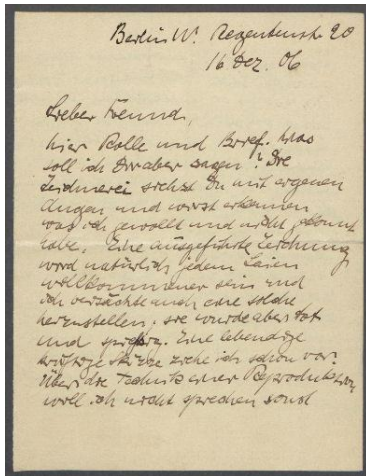 Berlin W. Regentenstr 20
16 Dez. 06
Lieber Freund,
hier Rolle und Brief. Was
soll ich darüber sagen? Die
Zeichnerei siehst Du mit eigenen
Augen und wirst erkennen
was ich gewollt und nicht gekonnt
habe. Eine ausgeführte Zeichnung
wird natürlich jedem Laien
willkommener sein und
ich verzichte auch eine solche
herzustellen, sie wurde aber tot
und
Eine lebendige
Skizze ziehe ich schon vor.
Über die Technik einer Reproduktion
will ich nicht sprechen sonst